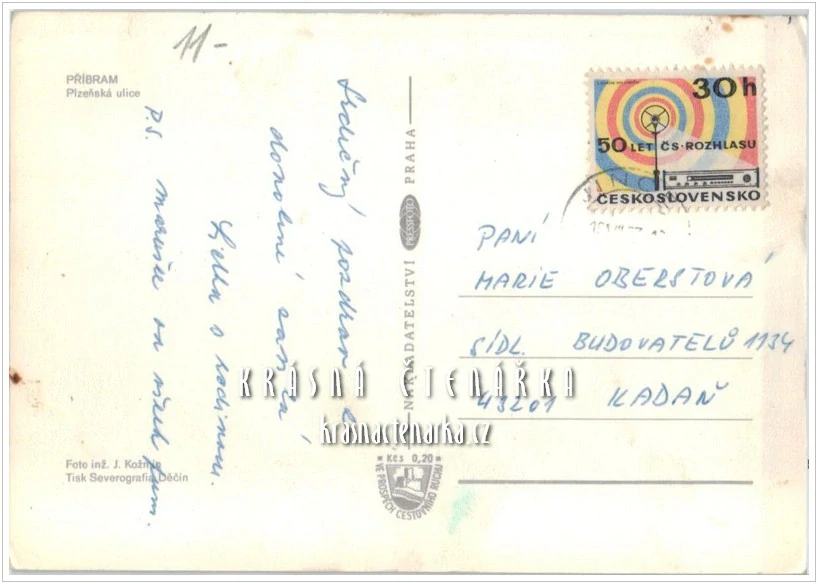 11-
PŘÍBRAM
Plzeňská ulice
Srdečný pozdrav z
dovolené
s rodinou.
P.S.
NAKLADATELSTVÍ PRESSFOTO PRAHA
30h
50 LET ČS. ROZHLASU
ČESKOSLOVENSKO
PANÍ
MARIE OBERSTOVÁ
SÍDL. BUDOVATELŮ 1134
43201 KADAŇ
KRÁSNÁ ČTENÁŘKA
krasnactenarka.cz
Foto inž. J.
Tisk Severografia Děčín
Kčs 0,20
VE PROSPĚCH CESTOVNÍHO RUCHU